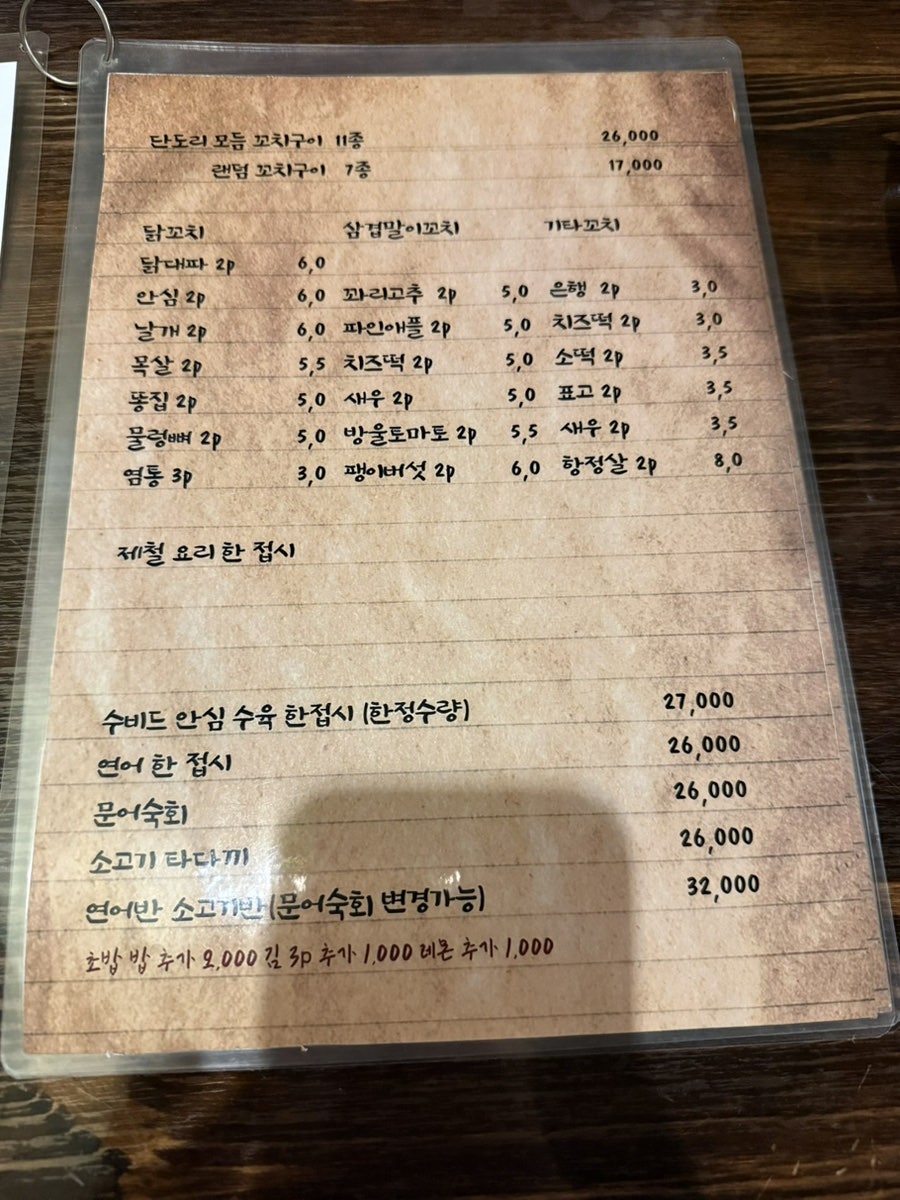 단도리 모듬 꼬치구이 11종 26,000
랜덤 꼬치구이 7종 17,000
닭꼬치 삼겹말이꼬치 기타꼬치
닭대파 2p 6,0
안심 2p 6,0 꽈리고추 2p 5,0 은행 2p 3,0
날개 2p 6,0 파인애플 2p 5,0 치즈떡 2p 3,0
목살 2p 5,5 치즈떡 2p 5,0 소떡 2p 3,5
똥집 2p 5,0 새우 2p 5,0 표고 2p 3,5
물렁뼈 2p 5,0 방울토마토 2p 5,5 새우 2p 3,5
염통 3p 3,0 팽이버섯 2p 6,0 항정살 2p 8,0
제철 요리 한 접시
수비드 안심 수육 한접시 (한정수량) 27,000
연어 한 접시 26,000
문어숙회 26,000
소고기 타다끼 26,000
연어반 소고기반(문어숙회 변경가능) 32,000
초밥 밥 추가 2,000 김 3p 추가 1,000 레몬 추가 1,000